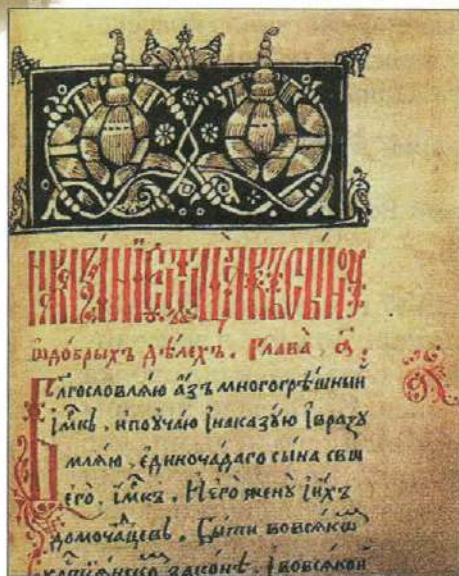 ѡдобрыхъ дѣлехъ. Глава, а҃.
Благословлѧю а҆́зъ многогрѣшный
і҆м҃къ, ипоучаю і҆наказꙋю і҆вразꙋ
млѧю, единочадаго сына сво
его, і҆м҃къ. Иего женꙋ̀ і҆и҆́хъ
домочадцевъ. Быти вовсѧком
христиꙗнско законѣ. І҆вовсѧкой